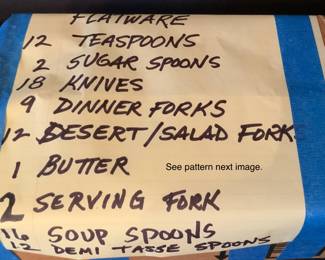 FLATWARE
12 TEASPOONS
2 SUGAR SPOONS
18 KNIVES
9 DINNER FORKS
12 DESERT/SALAD FORKS
1 BUTTER
See pattern next image.
2 SERVING FORK
16 SOUP SPOONS
12 DEMI TASSE SPOONS